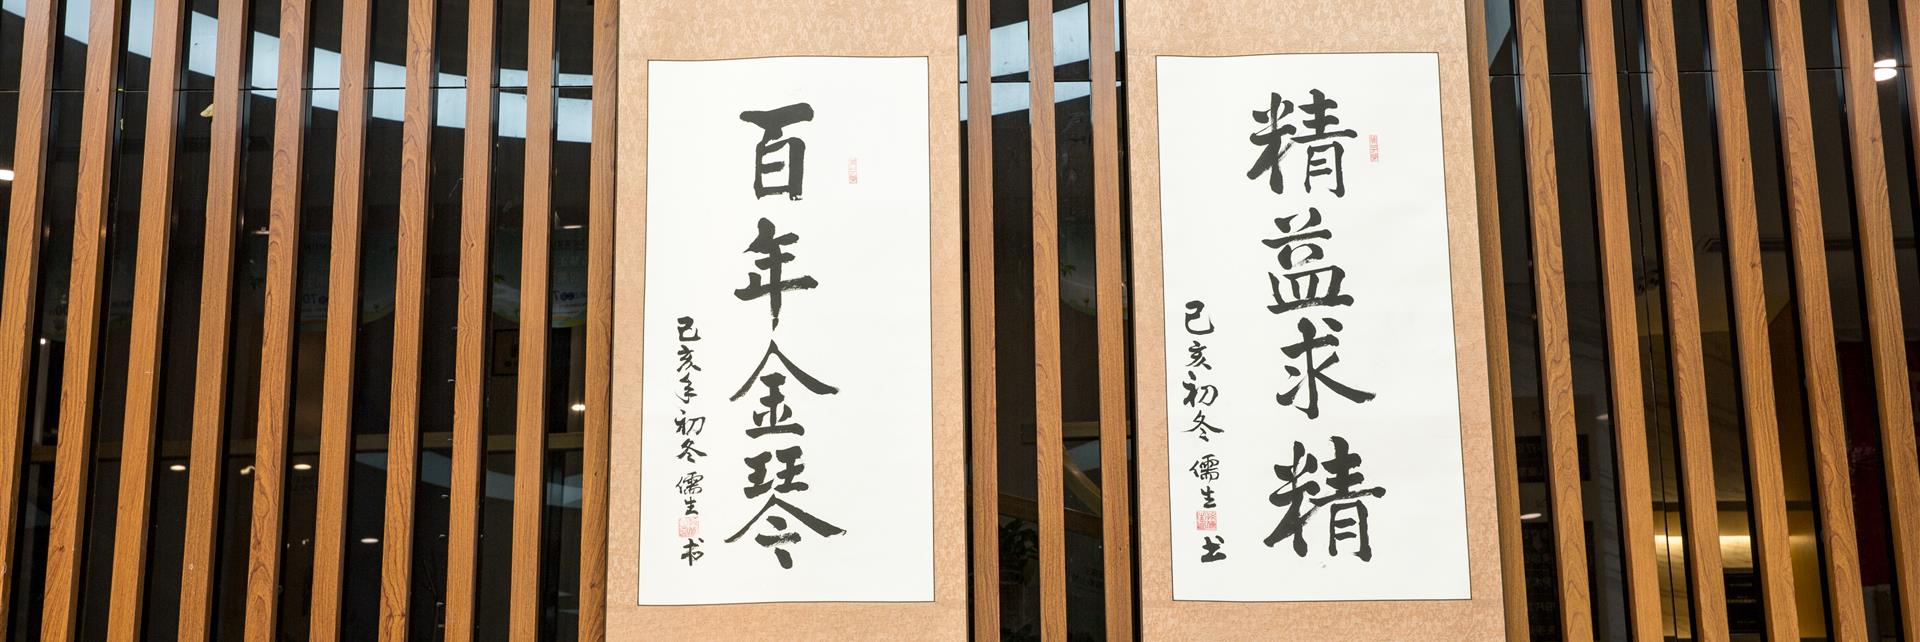 百年金琴
己亥年初冬儒生书
精益求精
己亥初冬儒生书